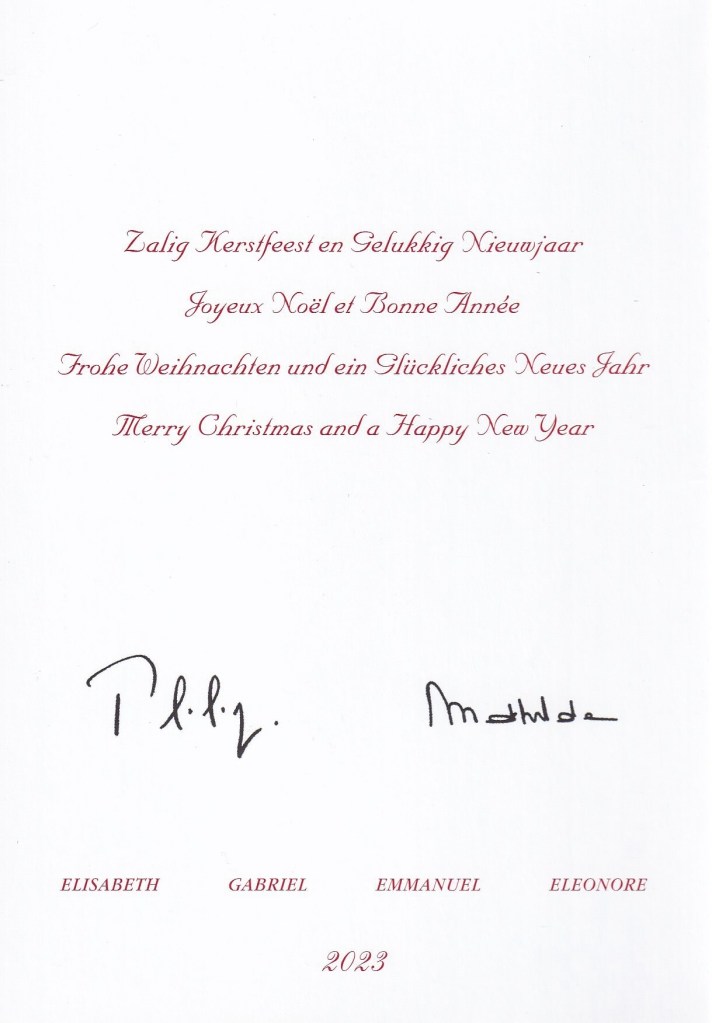 Zalig Kerstfeest en Gelukkig Nieuwjaar
Joyeux Noël et Bonne Année
Frohe Weihnachten und ein Glückliches Neues Jahr
Merry Christmas and a Happy New Year
Mathilde
ELISABETH GABRIEL EMMANUEL ELEONORE
2023